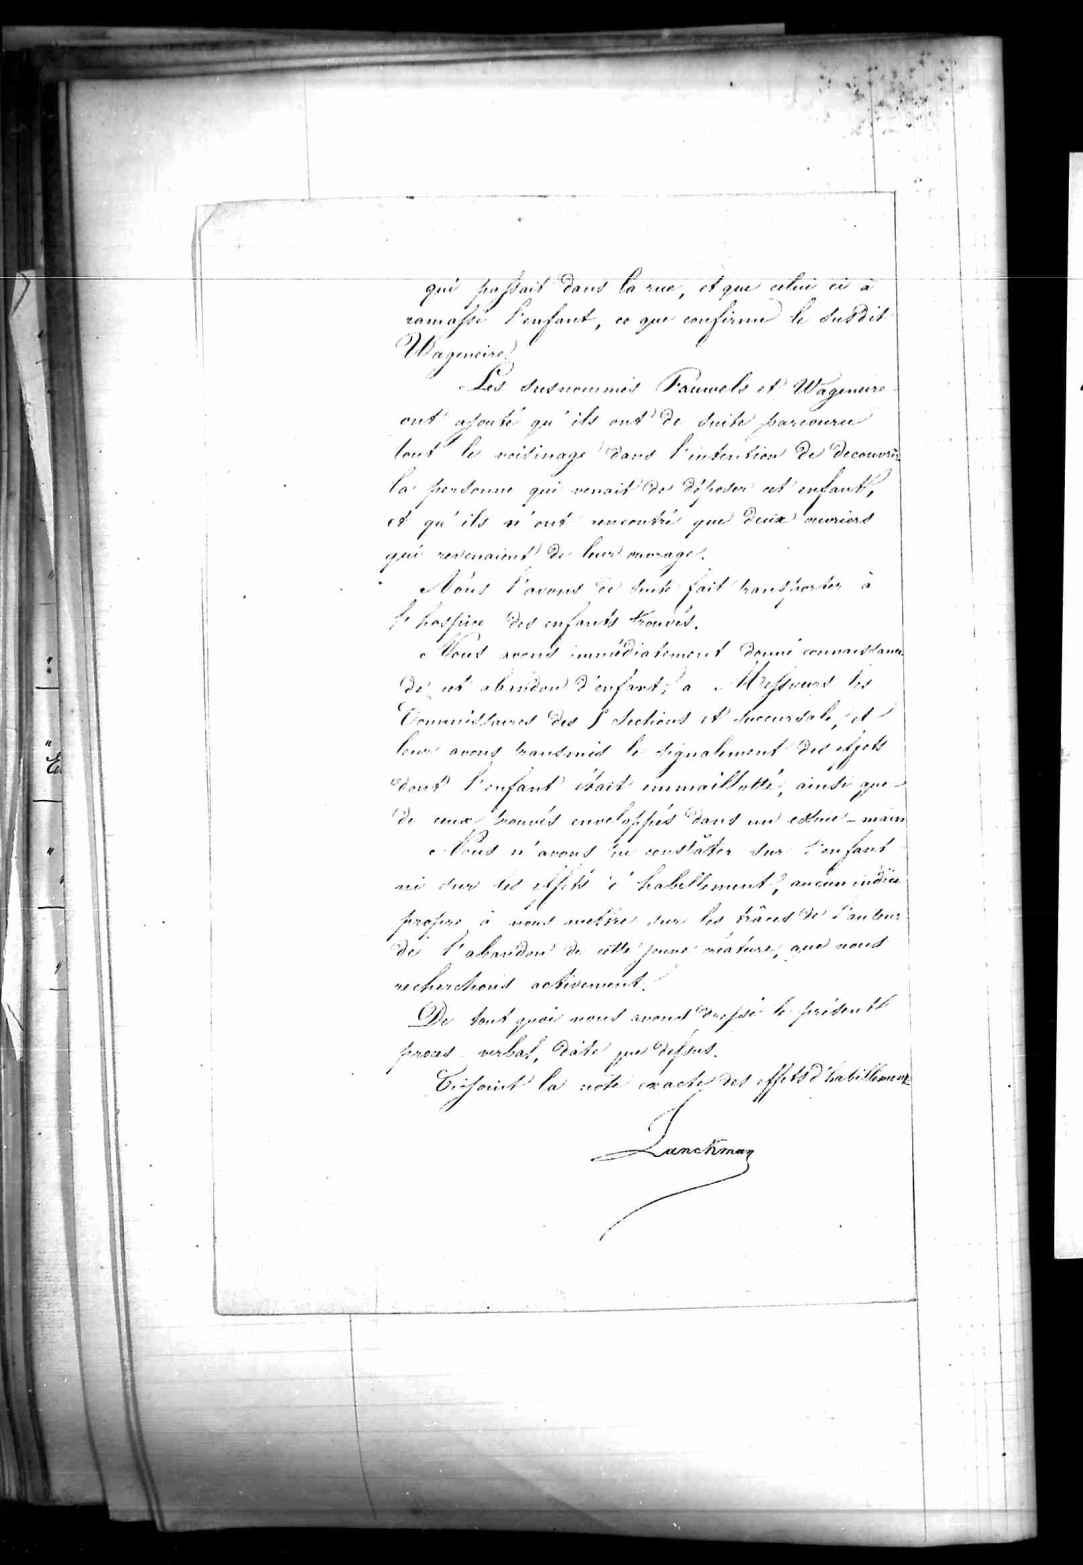 qui passait dans la rue, et que celui ci à
ramassé l'enfant, ce que confirme le susdit
Wageneire.
Les susnommés Pauwels et Wageneire
ont ajouté qu'ils ont de suite parcouru
tout le voisinage dans l'intention de decouvrir
la personne qui venait de déposer cet enfant,
et qu'ils n'ont rencontré que deux ouvriers
qui revenaient de leur ouvrage.
Nous l'avons de suite fait transporter à
l'hospice des enfants trouvés.
Nous avons immédiatement donné connaissance
de cet abandon d'enfant, a Messieurs les
Commissaires des sections et succursale, et
leur avons transmis le signalement des effets
dont l'enfant était emmaillotté, ainsi que
de ceux trouvés enveloppés dans un essuie-main
Nous n'avons pu constater sur l'enfant
ni sur les effets d'habillement, aucun indice
propre à nous mettre sur les traces de l'auteur
de l'abandon de cette jeune créature, que nous
recherchons activement.
De tout quoi nous avons dressé le présent
proces-verbal, date que dessus.
Cijoint la note exacte des effets d'habillement
Lanckman